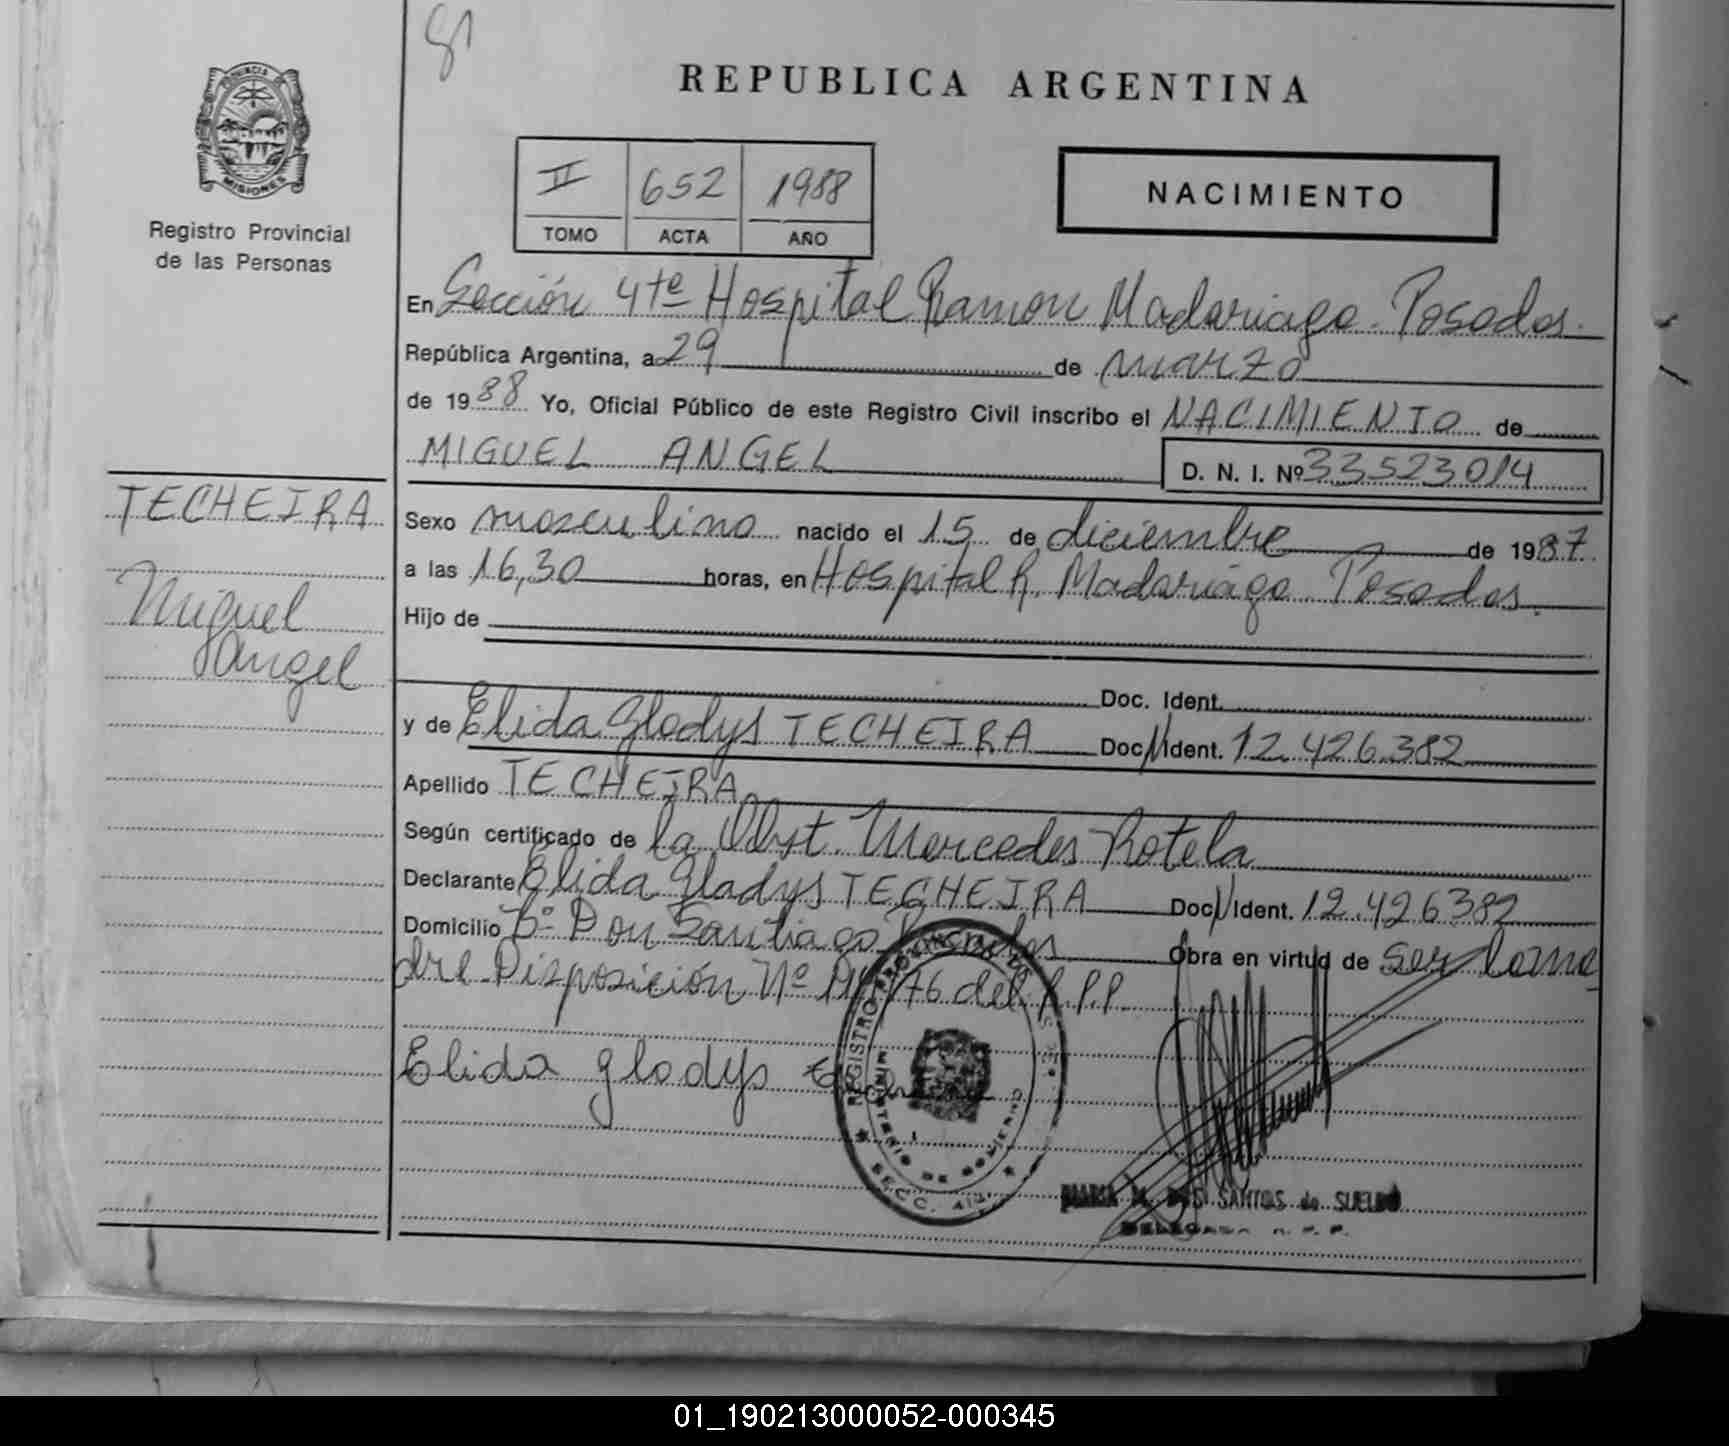 81
REPUBLICA ARGENTINA
PROVINCIA
MISIONES
Registro Provincial
de las Personas
II 652 1988
TOMO ACTA AÑO
NACIMIENTO
En Sección 4ta Hospital Ramon Madariaga. Posadas.
República Argentina, a 29 de marzo
de 1988 Yo, Oficial Público de este Registro Civil inscribo el NACIMIENTO de
MIGUEL ANGEL D. N. I. Nº 33523014
TECHEIRA
Miguel
Angel
Sexo masculino nacido el 15 de diciembre de 1987
a las 16,30 horas, en Hospital R. Madariaga Posadas.
Hijo de
Doc. Ident.
y de Elida Gladys TECHEIRA Doc. Ident. 12.426.382
Apellido TECHEIRA
Según certificado de la Obst. Mercedes Rotela
Declarante Elida Gladys TECHEIRA Doc. Ident. 12.426382
Domicilio Bº Don Santiago Posadas Obra en virtud de ser la ma
dre Disposición Nº /76 del R.P.P.
Elida gladys
REGISTRO PROVINCIAL DE
MINISTERIO DE GOBIERNO
SECC. 4ta.
MARIA M. DOS SANTOS de SUELDO
DELEGADA R. P. P.
01_190213000052-000345